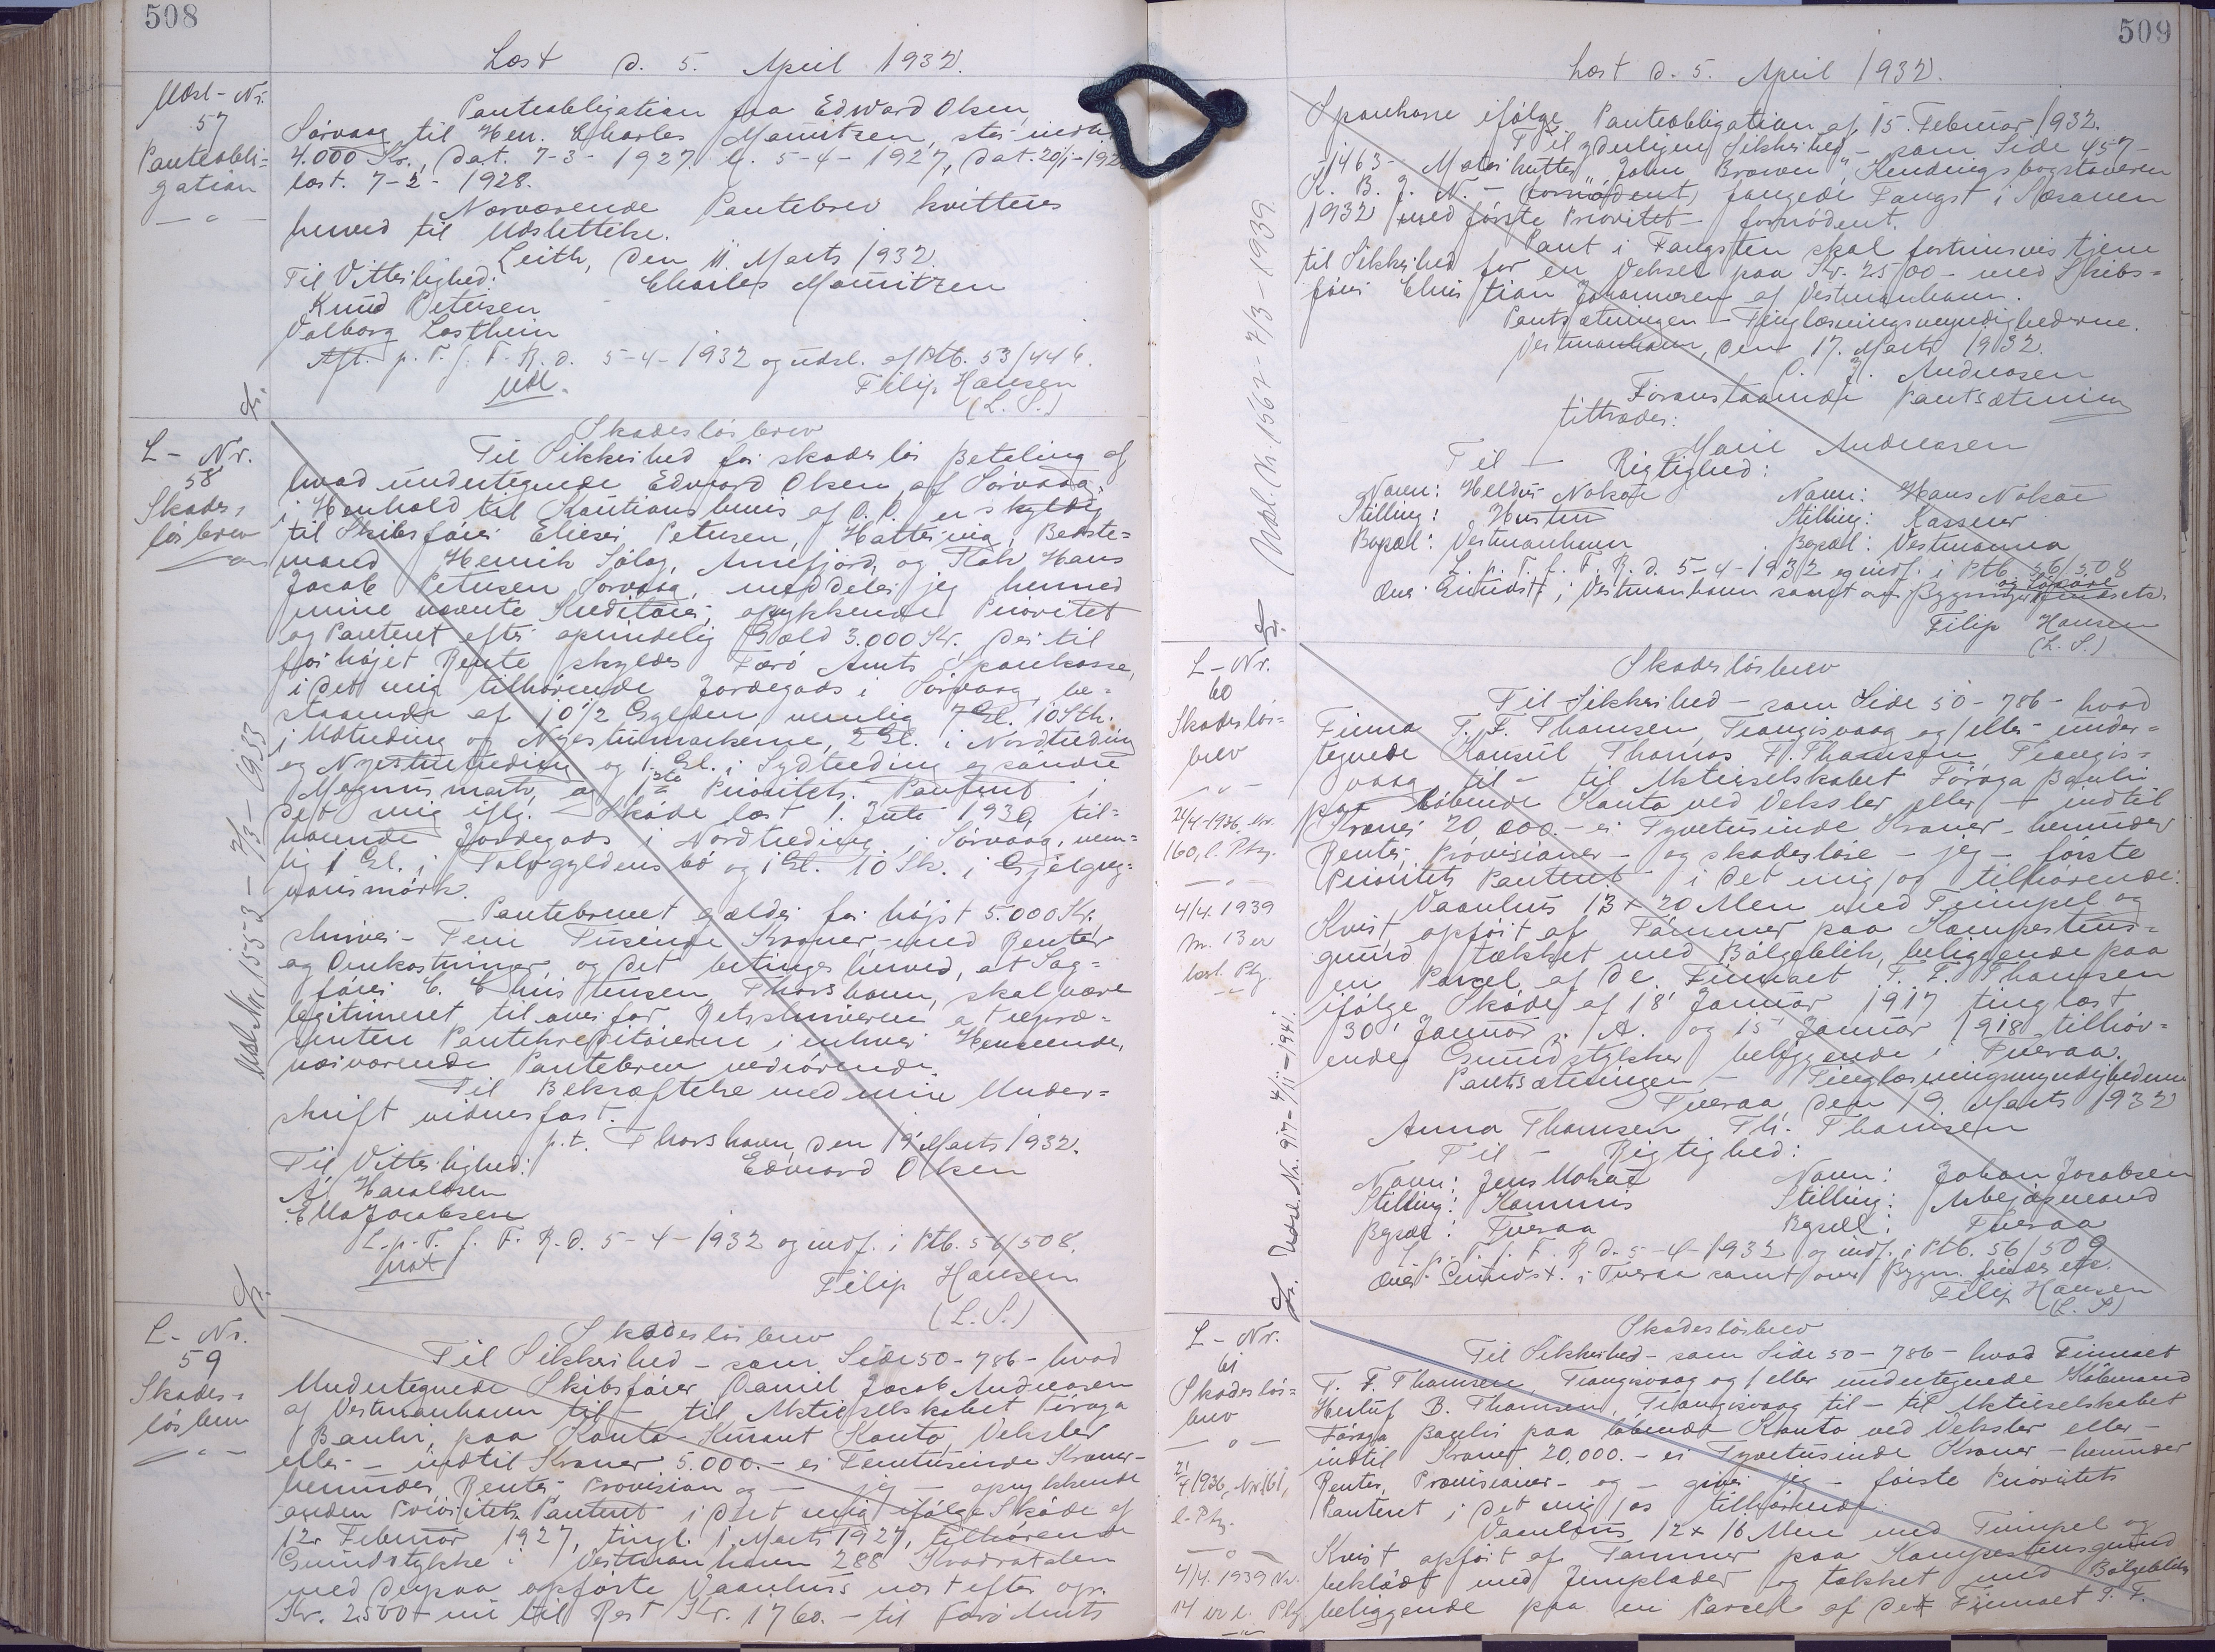 508
Læst d. 5. April 1932.
Udsl-Nr.
57
Panteobli=
gation
— " —
Panteobligation fra Edward Olsen,
Sørvaag til Hen. Charles Mouritzen, stor indtil
4.000 Kr., dat. 7-3-1927. l. 5-4-1927, dat. 20/1-192
læst. 7-2-1928.
Nærværende Pantebrev kvitteres
herved til Udslettelse.
Leith, den 11. Marts 1932.
Til Vitterlighed: Charles Mouritzen
Knud Petersen
Valborg
Afl. p. T. f. F. R. d. 5-4-1932 og udsl. af Ptb. 53/446.
Udl. Filip Hansen
(L. S.)
L- Nr.
58
Skades=
løsbrev
Skadesløsbrev
Til Sikkerhed for skadesløs Betaling af
hvad undertegnede Edward Olsen af Sørvaag,
i Henhold til Kautionsbevis af D. D. er skyldig
til Skibsfører Elieser Petersen, Hattervig, Bedste=
mand Henrik Sjólag, Arnefjord, og Kok Hans
Jacob Petersen, Sørvaag, meddeler jeg herved
mine nævnte Kreditorer, oprykkende Prioritet
og Panteret efter oprindelig Gæld 3.000 Kr. der til
forhøjet Rente skyldes Færø Amts Sparekasse,
i det mig tilhørende Jordegods i Sørvaag, be=
staaende af 10 1/2 Gylden, nemlig 7 Gl. 10 Sk.
i Udtieding og Nyestuemarkerne, 2 Gl. i Nordtieding
og Nyestuetieding og 1 Gl. i Sydtieding og søndre
Magnusmark, og 1ste Prioritets Panteret i
det mig iflg. Skøde læst 1. Juli 1930 til=
hørende Jordegods i Nordtieding i Sørvaag, nem=
lig 1 Gl. i Tolvgyldens bø og 1 Gl. 10 Sk. i
mørk.
Pantebrevet gælder for højst 5.000 Kr.
skriver - Fem Tusinde Kroner - med Renter
og Omkostninger, og det betinges herved, at Sag=
fører C. Christensen, Thorshavn, skal være
legitimeret til over for Retsskriveren at repræ=
sentere Pantekreditorerne i enhver Henseende,
nærværende Pantebrev vedrørende.
Til Bekræftelse med min Under=
skrift vidnesfast.
p.t. Thorshavn, den 19' Marts 1932.
Til Vitterlighed: Edward Olsen
A. Haraldsen
Ella Jacobsen
L. p. T. f. F. R. d. 5-4-1932 og indf. i Ptb. 56/508.
Filip Hansen
(L. S.)
Udsl. Nr. 1553 - 7/3 - 1933
L- Nr.
59
Skades=
løsbrev
— " —
Skadesløsbrev
Til Sikkerhed - som Side 50-786 - hvad
Undertegnede Skibsfører Daniel Jacob Andreasen
af Vestmanhavn til - til Aktieselskabet Føroya
Banki, paa Konto Kurant Konto, Veksler
eller - indtil Kroner 5.000.- er Femtusinde Kroner -
herunder Renter, Provision og - jeg - oprykkende
anden Prioritets Panteret i det mig ifølge Skøde af
12. Februar 1927, tingl. 1. Marts 1927, tilhørende
Grundstykke i Vestmanhavn 288 Kvadratalen
med derpaa opførte Vaanhus næst efter opr.
Kr. 2500 - nu til Rest Kr. 1760. - til Færø Amts
509
Læst d. 5. April 1932.
Sparekasse ifølge Panteobligation af 15. Februar 1932.
Til yderligere Sikkerhed - som Side 457-
-1463- Motorkutter "John Brown" Kendingsbogstaverne
K. B. J. N. - (fornødent) fangede Fangst i Sæsonen
1932 med første Prioritet - fornødent.
Pant i Fangsten skal fortrinsvis tjene
til Sikkerhed for en Veksel paa Kr. 2500 - med Skibs=
fører Christian Johannesen af Vestmanhavn.
Pantsætningen - Tinglæsningsmyndighederne.
Vestmanhavn, den 17. Marts 1932.
D. J. Andreasen
Foranstaaende Pantsætning
tiltrædes:
Marie Andreasen
Til - Rigtighed:
Navn: Heldur Nolsøe Navn: Hans Nolsøe
Stilling: Hustru Stilling: Kasserer
Bopæl: Vestmanhavn Bopæl: Vestmanna
L. p. T. f. F. R. d. 5-4-1932 og indf. i Ptb. 56/508
over Grundst. i Vestmanhavn samt over Bygninger
Filip Hansen
(L. S.)
Udsl. Nr. 1562 - 7/3 - 1939
L- Nr.
60
Skadesløs=
brev
— " —
24/4-1936, Nr.
160, l. Ptg.
— " —
4/4. 1939
Nr. 13 er
læst. Ptg.
— " —
Skadesløsbrev
Til Sikkerhed - som Side 50-786 - hvad
Firma T. F. Thomsen, Trangisvaag og/eller under=
tegnede Konsul Thomas F. Thomsen, Trangis=
vaag til - til Aktieselskabet Føroya Banki
paa løbende Konto ved Veksler eller - indtil
Kroner 20,000.- er Tyvetusinde Kroner - herunder
Renter, Provisioner - og skadesløse - jeg - første
Prioritets Panteret - i det mig/os tilhørende:
Vaanhus 13 x 20 Alen med Frimpel og
Kvist, opført af Tømmer paa Kampestens=
grund tækket med Bølgeblik, beliggende paa
en Parcel af de Firmaet T. F. Thomsen
ifølge Skøde af 18' Januar 1917 tinglæst
30' Januar s. A. og 15' Januar 1918 tilhør=
ende Grundstykker beliggende i Tveraa.
Pantsætningen - Tinglæsningsmyndighederne
Tveraa, den 19. Marts 1932
Anna Thomsen Th. Thomsen
Til - Rigtighed:
Navn: Jens Mohr Navn: Johan Jacobsen
Stilling: Kommis Stilling: Arbejdsmand
Bopæl: Tveraa Bopæl: Tveraa
L. p. T. f. F. R. d. 5-4-1932 og indf. i Ptb. 56/509
over Grundst. i Tveraa samt over Bygn. etc.
Filip Hansen
(L. S.)
Udsl. Nr. 917 - 4/11 - 1941.
L- Nr.
61
Skadesløs=
brev
— " —
2/4 1936, Nr. 161,
l. Ptg.
— " —
4/4. 1939 Nr.
14 er l. Ptg
— " —
Skadesløsbrev
Til Sikkerhed - som Side 50-786 - hvad Firmaet
T. F. Thomsen, Trangisvaag og/eller undertegnede Købmand
Herluf B. Thomsen, Trangisvaag til - til Aktieselskabet
Føroya Banki paa løbende Konto ved Veksler eller -
indtil Kroner 20,000.- er Tyvetusinde Kroner - herunder
Renter, Provisioner - og - giver jeg - første Prioritets
Panteret i det mig/os tilhørende:
Vaanhus 12 x 16 Alen med Frimpel og
Kvist opført af Tømmer paa Kampestensgrund
beklædt med Jernplader og tækket med Bølgeblik,
beliggende paa en Parcel af det Firmaet T. F.